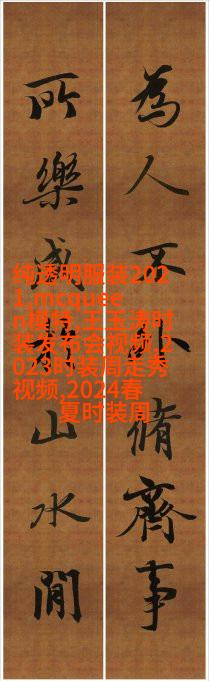 為人不外脩齊事
所樂咸山水間
纯透明服装202
1,mcquee
n模特,王玉涛时
装发布会视频,2
023时装周走秀
视频,2024春
夏时装周